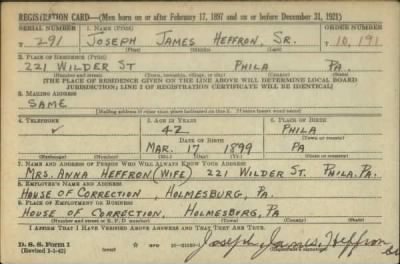 REGISTRATION CARD—(Men born on or after February 17, 1897 and on or before December 31, 1921)
SERIAL NUMBER 1. NAME (Print) ORDER NUMBER
T 291 JOSEPH JAMES HEFFRON, SR. T 10,191
(First) (Middle) (Last)
2. PLACE OF RESIDENCE (Print)
221 WILDER ST PHILA PA.
(Number and street) (Town, township, village, or city) (County) (State)
[THE PLACE OF RESIDENCE GIVEN ON THE LINE ABOVE WILL DETERMINE LOCAL BOARD
JURISDICTION; LINE 2 OF REGISTRATION CERTIFICATE WILL BE IDENTICAL]
3. MAILING ADDRESS
SAME
[Mailing address if other than place indicated on line 2. If same insert word same]
4. TELEPHONE 5. AGE IN YEARS 6. PLACE OF BIRTH
42 PHILA
DATE OF BIRTH (Town or county)
MAR. 17 1899 PA
(Exchange) (Number) (Mo.) (Day) (Yr.) (State or country)
7. NAME AND ADDRESS OF PERSON WHO WILL ALWAYS KNOW YOUR ADDRESS
MRS. ANNA HEFFRON (WIFE) 221 WILDER ST. PHILA. PA.
8. EMPLOYER'S NAME AND ADDRESS
HOUSE OF CORRECTION, HOLMESBURG, PA.
9. PLACE OF EMPLOYMENT OR BUSINESS
HOUSE OF CORRECTION, HOLMESBORG, PA.
(Number and street or R. F. D. number) (Town) (County) (State)
I AFFIRM THAT I HAVE VERIFIED ABOVE ANSWERS AND THAT THEY ARE TRUE.
D. S. S. Form 1
(Revised 1-1-42) (over) GPO Joseph James Heffron
(Registrant's signature)